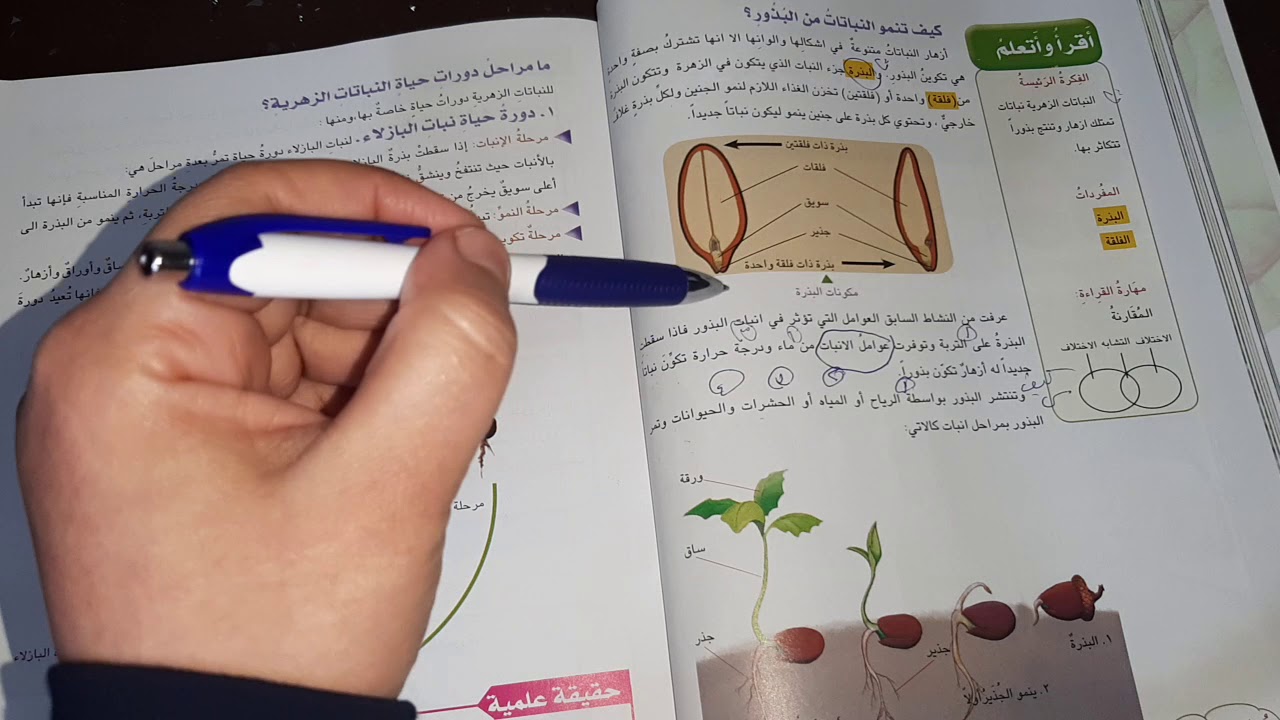 أقرأ وأتعلم
الفكرة الرئيسة
النباتات الزهرية نباتات
تمتلك ازهار وتنتج بذوراً
تتكاثر بها.
المفردات
البذرة
الفلقة
مهارة القراءة:
المقارنة
الاختلاف التشابه الاختلاف
كيف تنمو النباتات من البذور؟
أزهار النباتات متنوعة في اشكالها والوانها الا انها تشترك بصفة واحدة
هي تكوين البذور. والبذرة جزء النبات الذي يتكون في الزهرة وتتكون البذرة
من (فلقة) واحدة أو (فلقتين) تخزن الغذاء اللازم لنمو الجنين ولكل بذرة غلاف
خارجي، وتحتوي كل بذرة على جنين ينمو ليكون نباتاً جديداً.
بذرة ذات فلقتين
فلقات
سويق
جذير
بذرة ذات فلقة واحدة
مكونات البذرة
عرفت من النشاط السابق العوامل التي تؤثر في انبات البذور فاذا سقطت
البذرة على التربة وتوفرت عوامل الانبات من ماء ودرجة حرارة تكون نباتاً
جديداً له أزهار تكون بذوراً.
وتنتشر البذور بواسطة الرياح أو المياه أو الحشرات والحيوانات وتمر
البذور بمراحل انبات كالاتي:
ورقة
ساق
جذر
جذير
١. البذرة
٢. ينمو الجذير أولاً
ما مراحل دورات حياة النباتات الزهرية؟
للنباتات الزهرية دورات حياة خاصة بها، ومنها:
١. دورة حياة نبات البازلاء - لنبات البازلاء دورة حياة تمر بعدة مراحل هي:
مرحلة الإنبات: إذا سقطت بذرة
درجة الحرارة المناسبة فإنها تبدأ
بالأنبات حيث تنتفخ وينشق
أعلى سويق يخرج من
التربة، ثم ينمو من البذرة الى
مرحلة النمو:
مرحلة
ساق وأوراق وأزهار.
فإنها تعيد دورة
مرحلة
البازلاء
حقيقة علمية